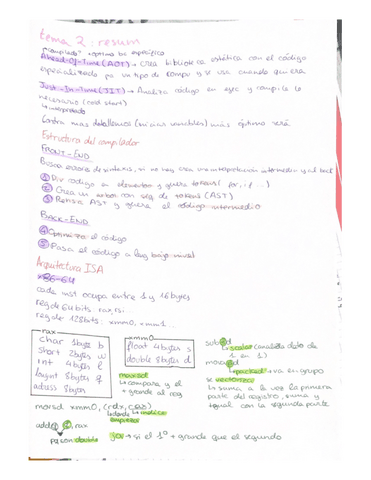 tema 2: resum
Ahead-Of-Time (AOT) → Crea biblioteca estática con el código
especializado pa un tipo de compu y se usa cuando quiera
Just-In-Time (JIT) → Analiza código en ejec y compila lo
necesario (cold start)
→ interpretado
Contra mas detallemos (iniciar variables) más óptimo será
Estructura del compilador
FRONT-END
Busca errores de sintaxis, si no hay crea una interpretación intermedia y al back
① Div código en elementos y genera tokens (for, /...)
② Crea un arbol con seq de tokens (AST)
③ Revisa AST y genera el código intermedio
BACK-END
④ Optimiza el código
⑤ Pasa el código a leng bajo nivel
Arquitectura ISA
x86-64
cada inst ocupa entre 1 y 16 bytes
reg de 64 bits: rax, rs...
reg de 128 bits: xmm0, xmm1...
rax
char 1 byte b
short 2 bytes w
int 4 bytes l
longint 8 bytes q
adress 8 bytes
xmm0
float 4 bytes s
double 8 bytes d
maxssd
↳ compara y el
+ grande al reg
subsd
↳ scalar (cada dato de
1 en 1)
movapd
↳ packed → va en grupo
se vectoriza
↳ suma a la vez la primera
parte del registro, suma y
igual con la segunda parte
movsd xmm0, (rdx, rcx)
↳ donde
↳ indice
empieza
rax
↳ packed double
↳ si el 1º + grande que el segundo